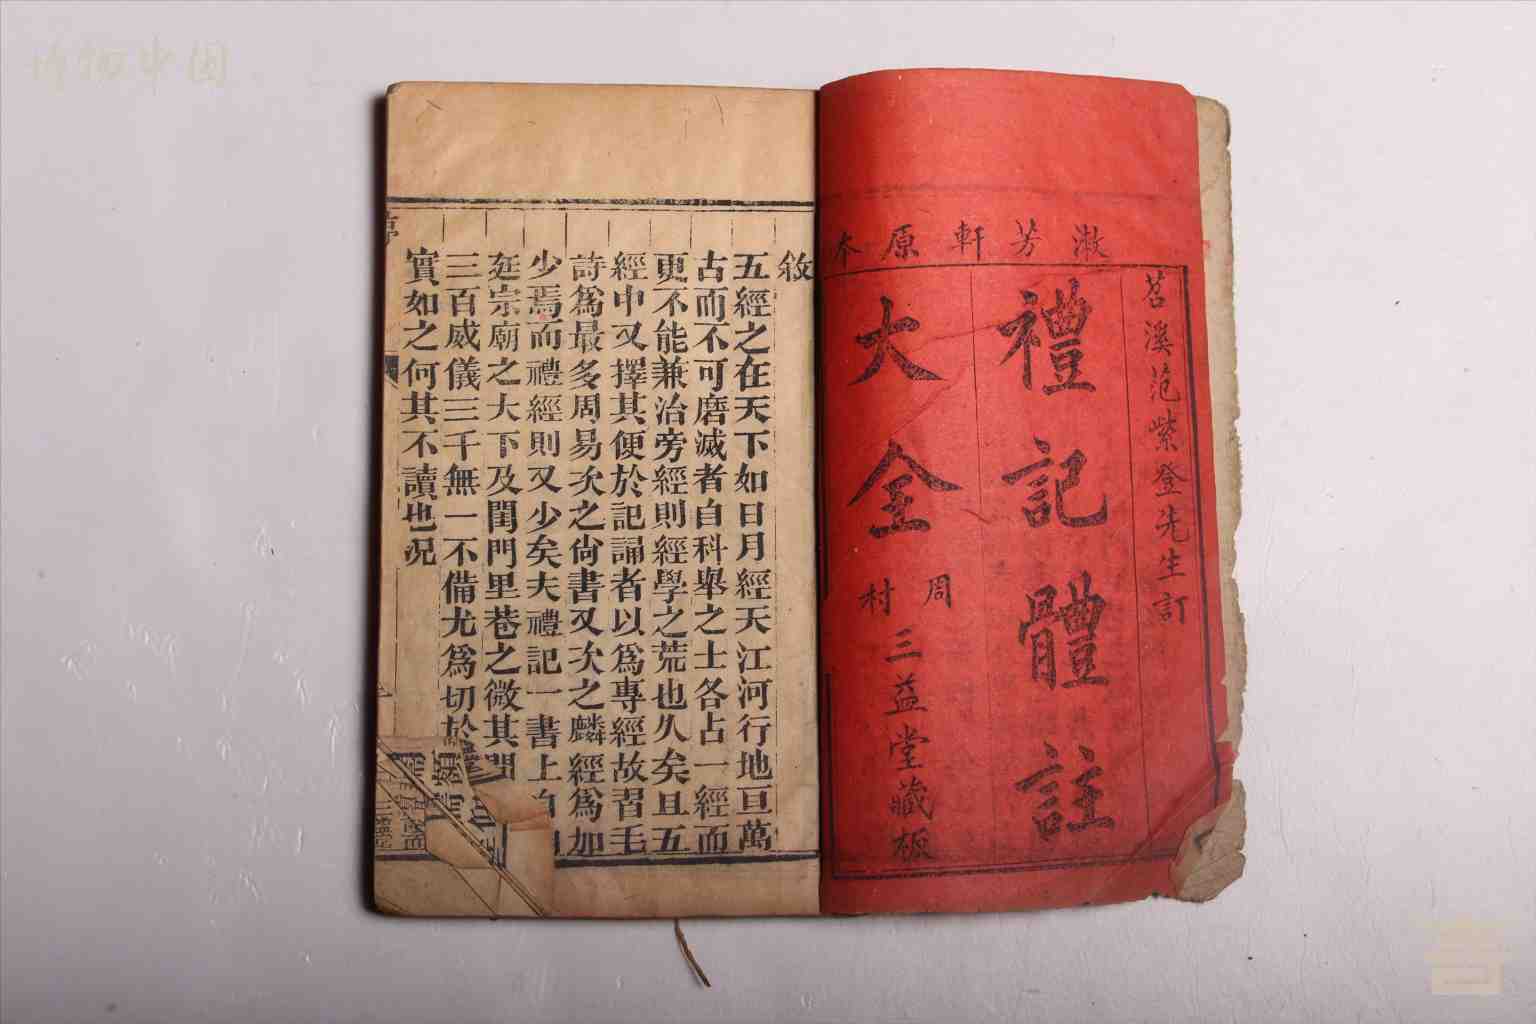 漱芳軒原本
苕溪范紫登先生訂
禮記體註
大全
周村
三益堂藏板
敘
五經之在天下如日月經天江河行地亘萬
古而不可磨滅者自科舉之士各占一經而
更不能兼治旁經則經學之荒也久矣且五
經中又擇其便於記誦者以為專經故習毛
詩為最多周易次之尚書又次之麟經為加
少焉而禮經則又少矣夫禮記一書上自
廷宗廟之大下及閨門里巷之微其間
三百威儀三千無一不備尤為切於
實如之何其不讀也況
博物中国